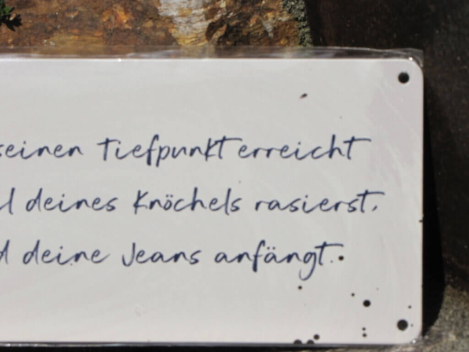 seinen Tiefpunkt erreicht
l deines Knöchels rasierst,
d deine Jeans anfängt.